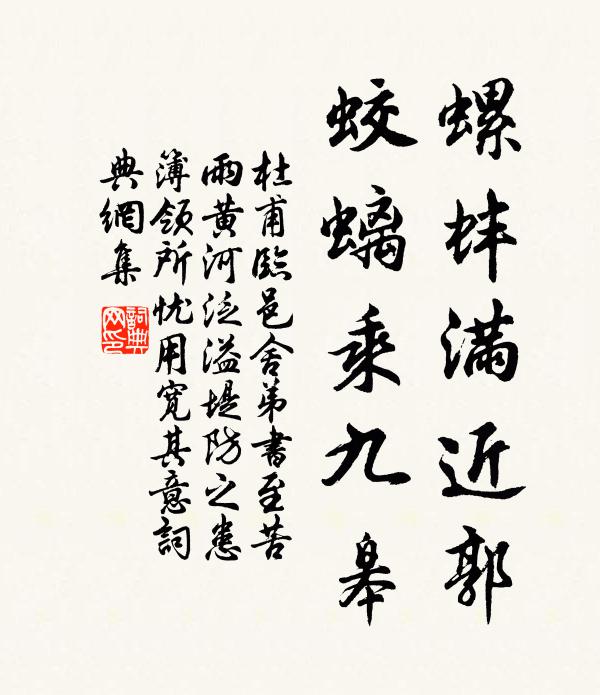 螺蚌滿近郭
蛟螭乘九皋
杜甫臨邑舍弟書至苦
雨黃河泛溢堤防之患
簿領所忧用寬其意詞
典網集
詞典
网印